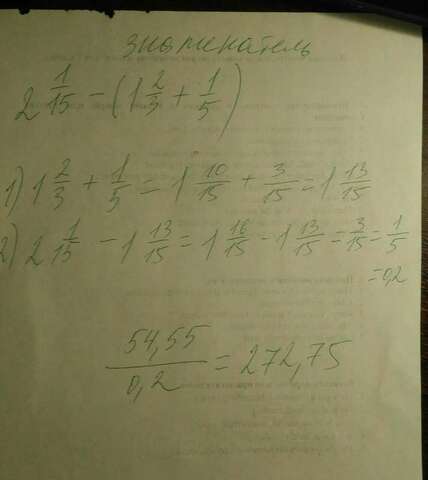 знаменатель
2 1/15 - (1 2/3 + 1/5)
1) 1 2/3 + 1/5 = 1 10/15 + 3/15 = 1 13/15
2) 2 1/15 - 1 13/15 = 1 16/15 - 1 13/15 = 3/15 = 1/5
= 0,2
54,55/0,2 = 272,75